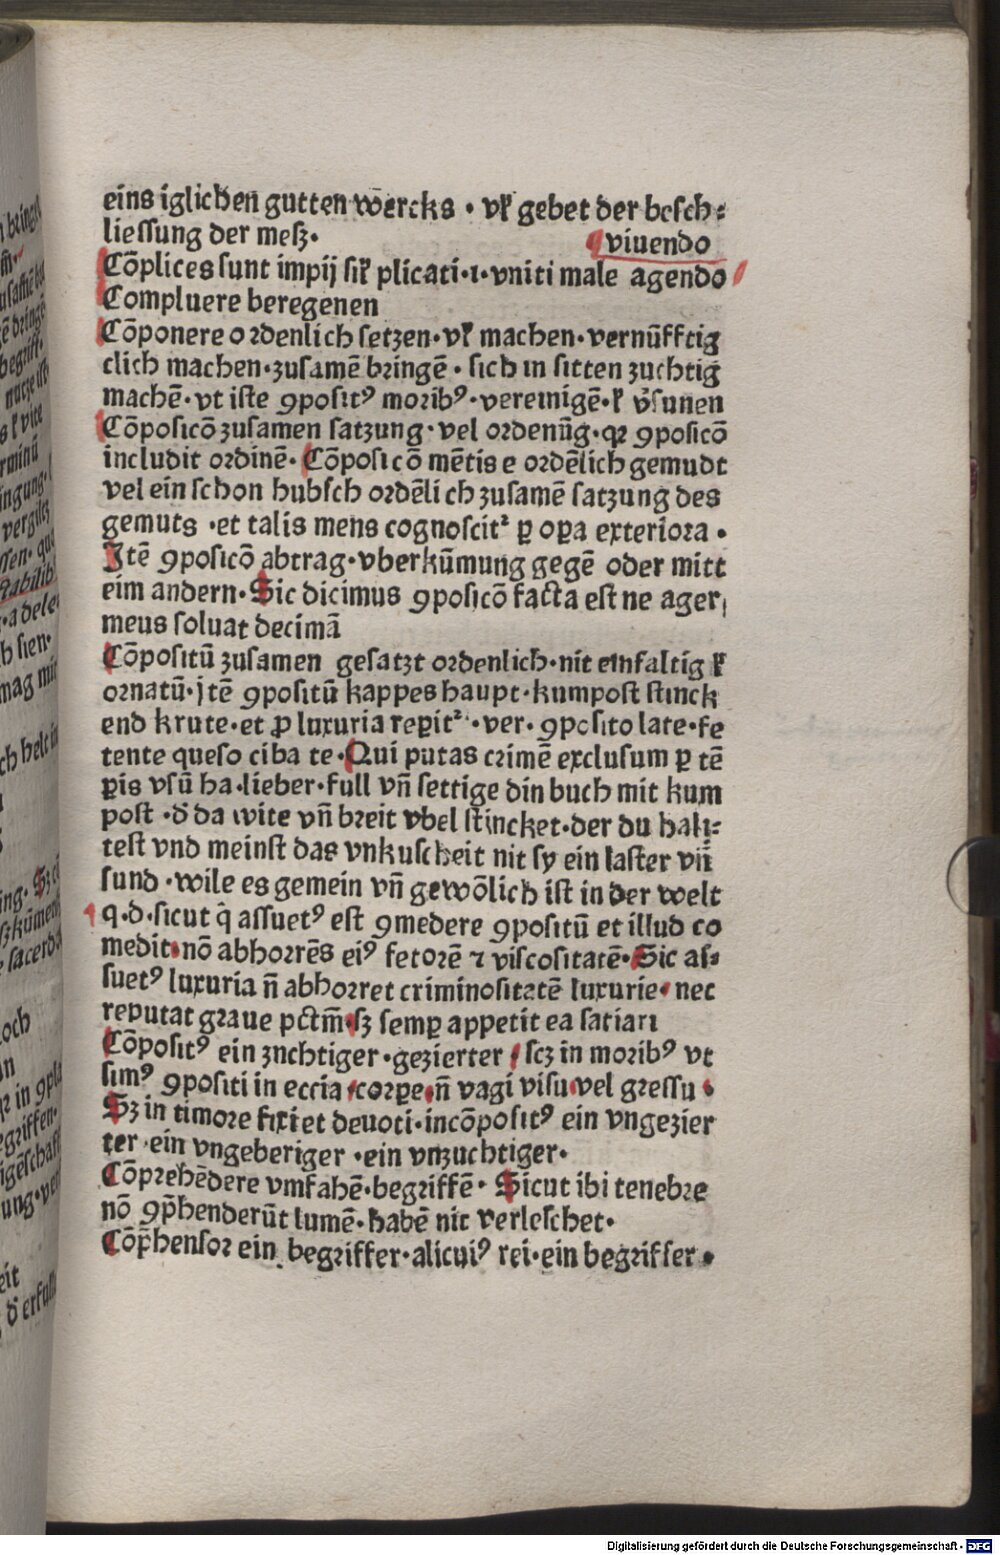 eins iglichen gutten wercks · vl' gebet der besch⸗
liessung der mesz·
viuendo
Cōplices sunt impij sil' plicati·i·vniti male agendo
Compluere beregenen
Cōponere ordenlich setzen·vl' machen·vernūfftig
clich machen·zusamē bringē·sich in sitten zuchtig
machē·vt iste ꝯpositꝰ moribꝰ·vereinigē·l' v̄sunen
Cōposicō zusamen satzung·vel ordenūg·qꝛ ꝯposicō
includit ordinē·Cōposicō mētis e ordēlich gemudt
vel ein schon hubsch ordēlich zusamē satzung des
gemuts ·et talis mens cognoscitᷣ ꝑ oꝑa exteriora·
Jtē ꝯposicō abtrag·vberkūmung gegē oder mitt
eim andern·Sic dicimus ꝯposicō facta est ne ager
meus soluat decimā
Cōpositū zusamen gesatzt ordenlich·nit einfaltig l'
ornatū·jtē ꝯpositū kappes haupt·kumpost stinck
end krute·et ꝓ luxuria reꝑitᷣ·ver·ꝯposito late·fe
tente queso ciba te·Qui putas crimē exclusum ꝑ tē
ꝑis vsū ha·lieber·full vn̄ settige din buch mit kum
post ·d̄ da wite vn̄ breit vbel stincket·der du hal⸗
test vnd meinst das vnkuscheit nit sy ein laster vn̄
sund ·wile es gemein vn̄ gewōlich ist in der welt
q·d·sicut q̇ assuetꝰ est ꝯmedere ꝯpositū et illud co
medit·nō abhorrēs eiꝰ fetorē ⁊ viscositatē·Sic as⸗
suetꝰ luxuria n̄ abhorret criminositatē luxurie·nec
reputat graue pctm̄·sꝫ semꝑ appetit ea satiari
Cōpositꝰ ein znchtiger·gezierter·scꝫ in moribꝰ vt
simꝰ ꝯpositi in eccia·corꝑe·n̄ vagi visu·vel gressu·
Sꝫ in timore fixi et deuoti·incōpositꝰ ein vngezier
ter·ein vngeberiger·ein vnzuchtiger·
Cōprehēdere vmfahē·begriffē·Sicut ibi tenebre
nō ꝯp̄henderūt lumē·habē nit verleschet·
Cōp̄hensor ein begriffer·alicuiꝰ rei·ein begriffer·
Digitalisierung gefördert durch die Deutsche Forschungsgemeinschaft - DFG